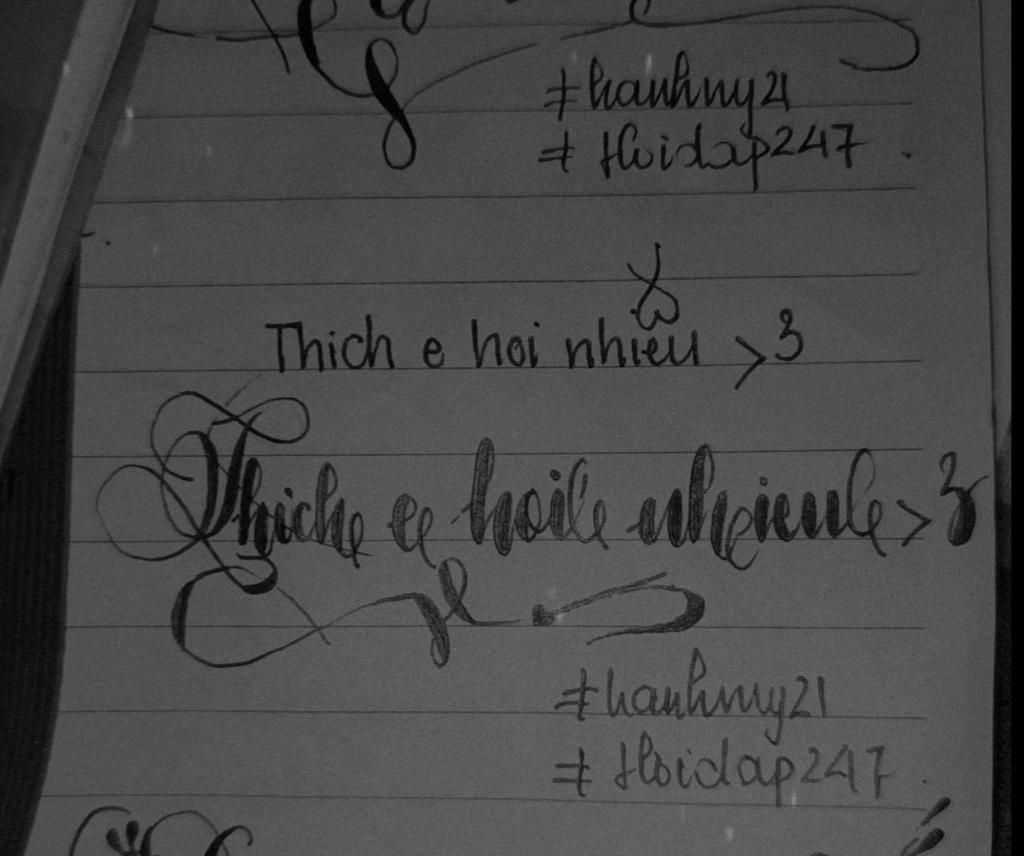 #hanhmy21
#Hoidap247.
Thich e hoi nhiều >3
Thich e hoi nhieu >3
#hanhmy21
#Hoidap247.